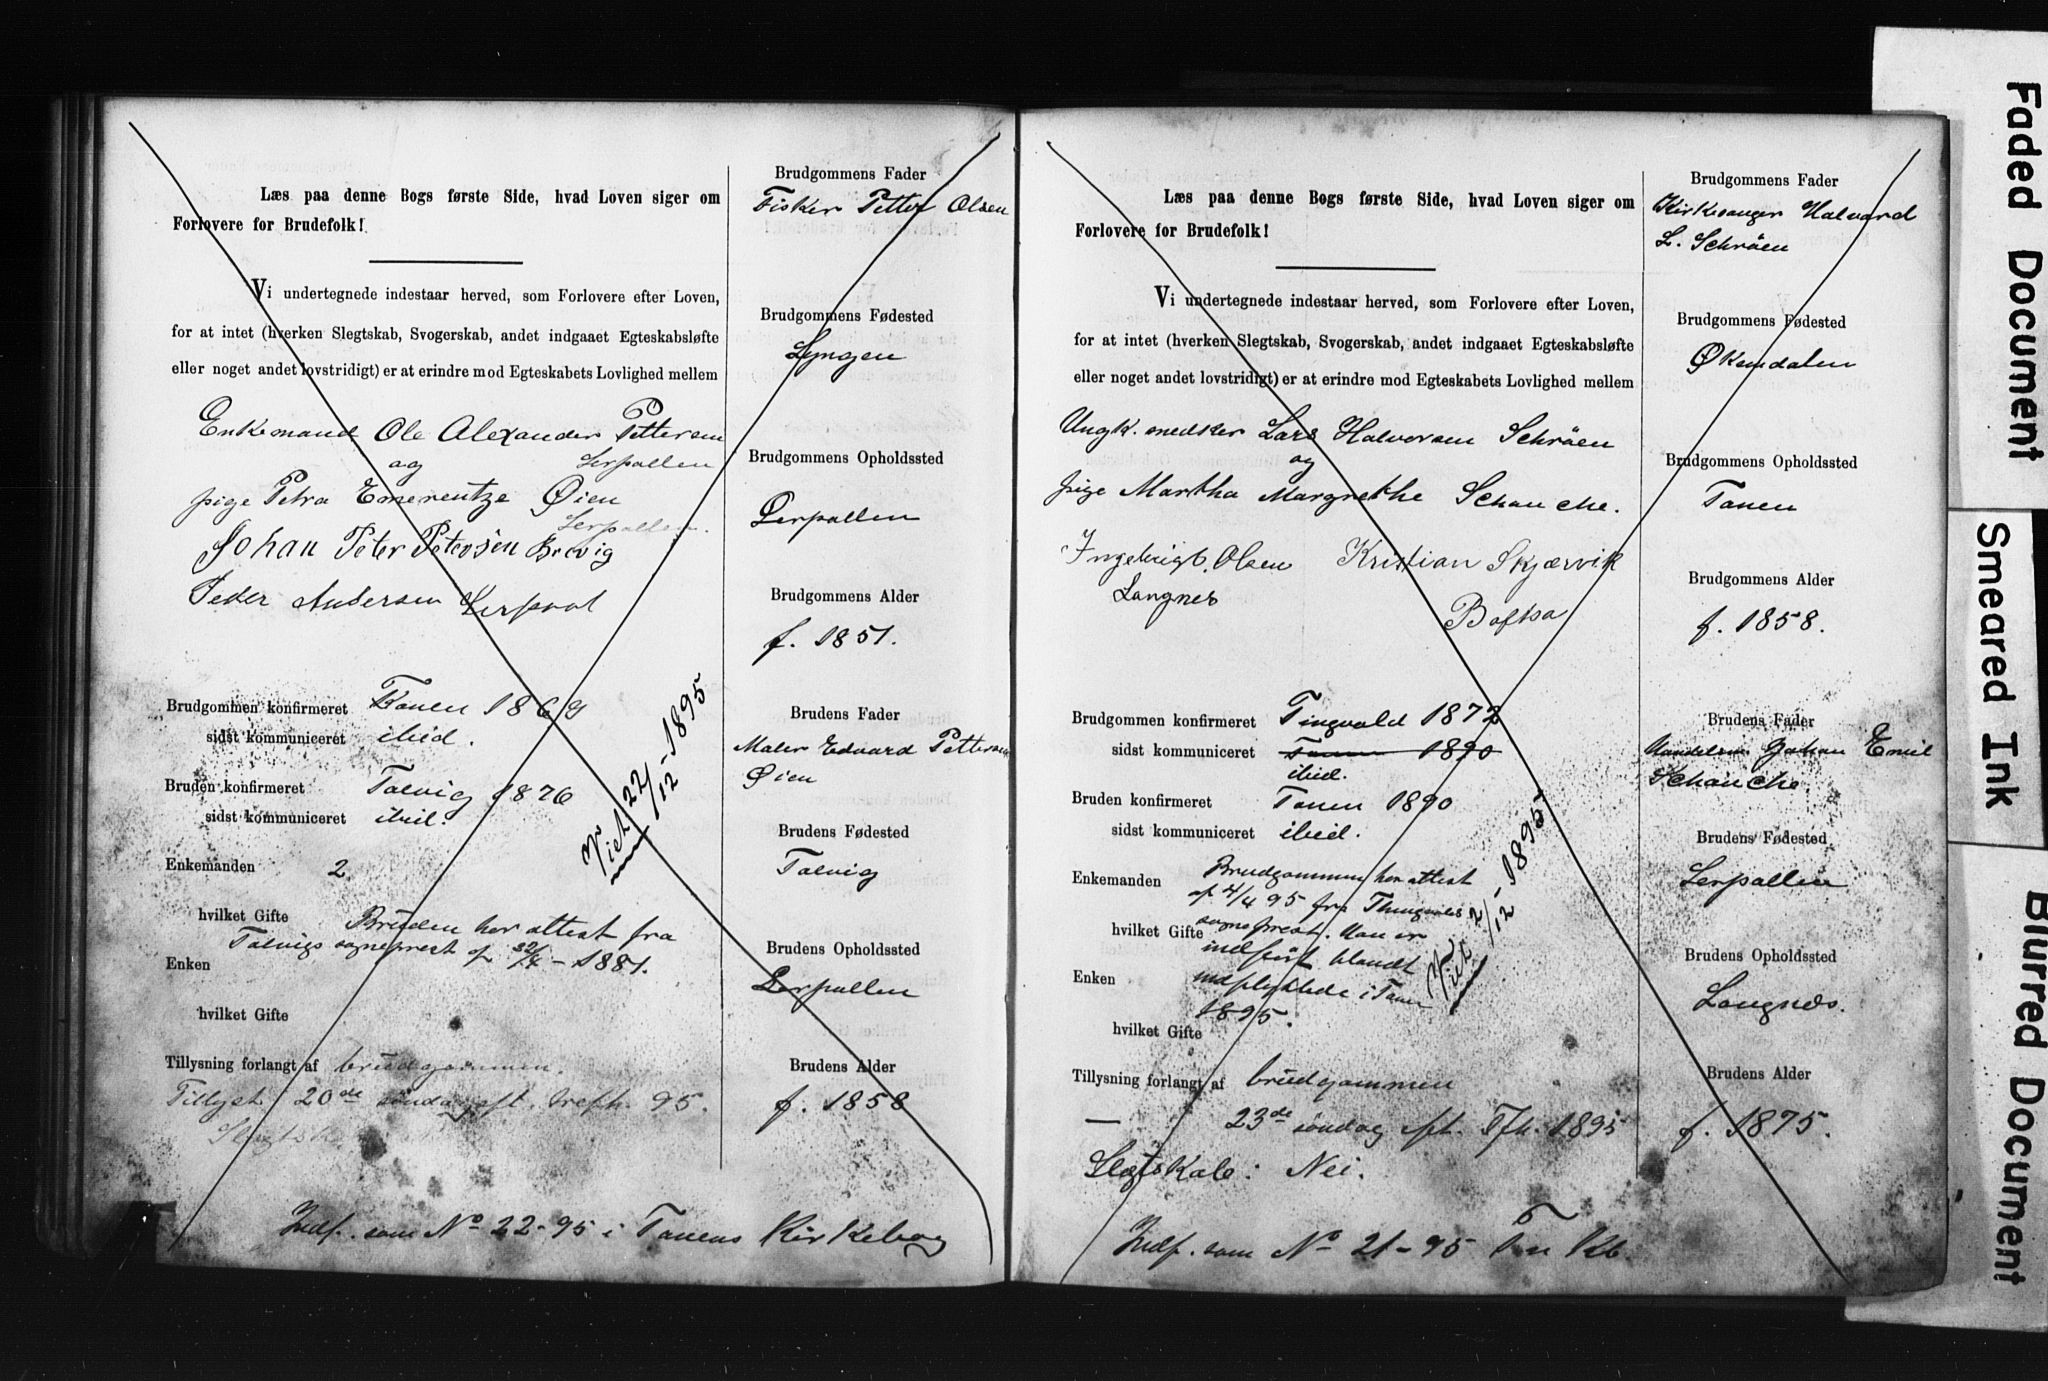 Læs paa denne Bogs første Side, hvad Loven siger om
Forlovere for Brudefolk!
Vi undertegnede indestaar herved, som Forlovere efter Loven,
for at intet (hverken Slegtskab, Svogerskab, andet indgaaet Egteskabsløfte
eller noget andet lovstridigt) er at erindre mod Egteskabets Lovlighed mellem
Enkemand Ole Alexander Pettersen
og Lerpollen
pige Petra Emerentze Øien
Lerpollen.
Johan Peter Petersen Brevig
Peder Andersen Lerpool
Brudgommen konfirmeret Tanen 1869
sidst kommuniceret ibid.
Bruden konfirmeret Talvig 1876
sidst kommuniceret ibid.
Enkemanden 2
hvilket Gifte Bruden har attest fra
Talvigs sogneprest af 22/4 - 1881.
Enken
hvilket Gifte
Viet 22/12 - 1895
Tillysning forlangt af brudgommen.
Tillyst 20de søndag eft. trefh. 95.
Slegtsk.
Indf. som No 22-95 i Tanens Kirkebog
Brudgommens Fader
Fisker Petter Olsen
Brudgommens Fødested
Lyngen
Brudgommens Opholdssted
Lerpollen
Brudgommens Alder
f. 1851.
Brudens Fader
Maler Edvard Pettersen
Øien
Brudens Fødested
Talvig
Brudens Opholdssted
Lerpollen
Brudens Alder
f. 1858
Læs paa denne Bogs første Side, hvad Loven siger om
Forlovere for Brudefolk!
Vi undertegnede indestaar herved, som Forlovere efter Loven,
for at intet (hverken Slegtskab, Svogerskab, andet indgaaet Egteskabsløfte
eller noget andet lovstridigt) er at erindre mod Egteskabets Lovlighed mellem
Ungk. snedker Lars Halvorsen Schrøen
og
pige Martha Margrethe Schanche.
Ingebrigt Olsen Kristian Skjærvik
Langnes Boftsa
Brudgommen konfirmeret Tingvold 1872
sidst kommuniceret Tanen 1890
ibid.
Bruden konfirmeret Tanen 1890
sidst kommuniceret ibid.
Enkemanden Brudgommen har attest
af 4/4 95 fra Thingvolds
hvilket Gifte sogneprest. Han er
indført blandt
Enken indflyttede i Tanen
1895.
hvilket Gifte
Viet 2/12 - 1895
Tillysning forlangt af brudgommen
— 23de søndag eft. Tfh. 1895
Slegtskab: Nei.
Indf. som No 21-95 Tn Kb.
Brudgommens Fader
Kirkesanger Halvard
L. Schrøen
Brudgommens Fødested
Økendalen
Brudgommens Opholdssted
Tanen
Brudgommens Alder
f. 1858.
Brudens Fader
Handelsm. Johan Emil
Schanche
Brudens Fødested
Lerpollen
Brudens Opholdssted
Langnæs.
Brudens Alder
f. 1875.
Faded Document
Smeared Ink
Blurred Document